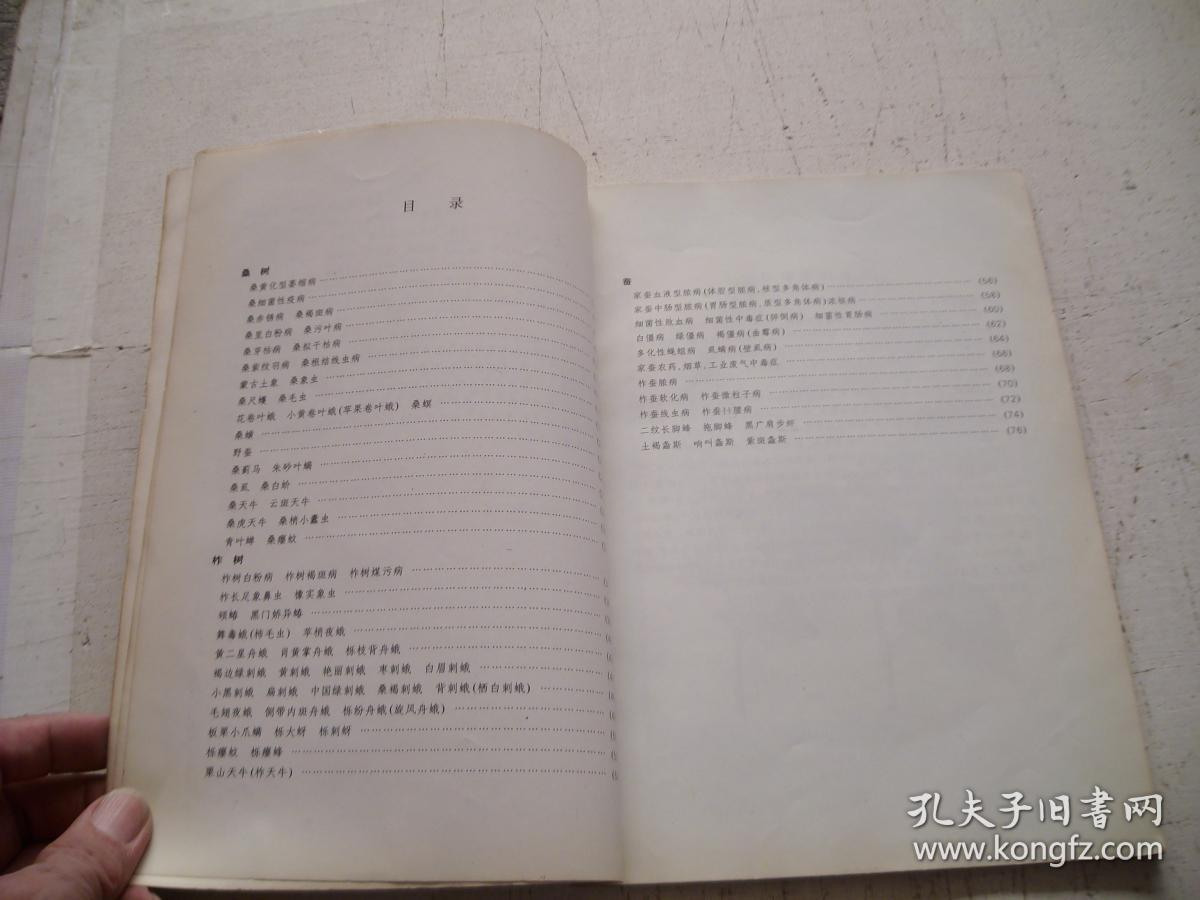 目 录
桑 树
桑黄化型萎缩病
桑细菌性疫病
桑赤锈病 桑褐斑病
桑里白粉病 桑污叶病
桑芽枯病 桑拟干枯病
桑紫纹羽病 桑根结线虫病
蒙古土象 桑象虫
桑尺蠖 桑毛虫
花卷叶蛾 小黄卷叶蛾(苹果卷叶蛾) 桑螟
桑蟥
野蚕
桑蓟马 朱砂叶螨
桑虱 桑白蚧
桑天牛 云斑天牛
桑虎天牛 桑梢小蠹虫
青叶蝉 桑瘿蚊
柞 树
柞树白粉病 柞树褐斑病 柞树煤污病
柞长足象鼻虫 橡实象虫
蝽 黑门娇异蝽
舞毒蛾(柿毛虫) 苹梢夜蛾
黄二星舟蛾 肖黄掌舟蛾 栎枝背舟蛾
褐边绿刺蛾 黄刺蛾 艳丽刺蛾 枣刺蛾 白眉刺蛾
小黑刺蛾 扁刺蛾 中国绿刺蛾 桑褐刺蛾 背刺蛾(栖白刺蛾)
毛翅夜蛾 侧带内斑舟蛾 栎纷舟蛾(旋风舟蛾)
板栗小爪螨 栎大蚜 栎刺蚜
栎瘿蚊 栎瘿蜂
栗山天牛(柞天牛)
蚕
家蚕血液型脓病(体腔型脓病,核型多角体病) (56)
家蚕中肠型脓病(胃肠型脓病,质型多角体病)浓核病 (58)
细菌性败血病 细菌性中毒症(猝倒病) 细菌性胃肠病 (60)
白僵病 绿僵病 褐僵病(曲霉病) (62)
多化性蝇蛆病 虱螨病(壁虱病) (64)
家蚕农药,烟草,工业废气中毒症 (66)
柞蚕脓病 (68)
柞蚕软化病 柞蚕微粒子病 (70)
柞蚕线虫病 柞蚕吐腰病 (72)
二纹长脚蜂 拖脚蜂 黑广肩步蚜 (74)
土褐螽斯 响叫螽斯 紫斑螽斯 (76)
孔夫子旧书网
www.kongfz.com